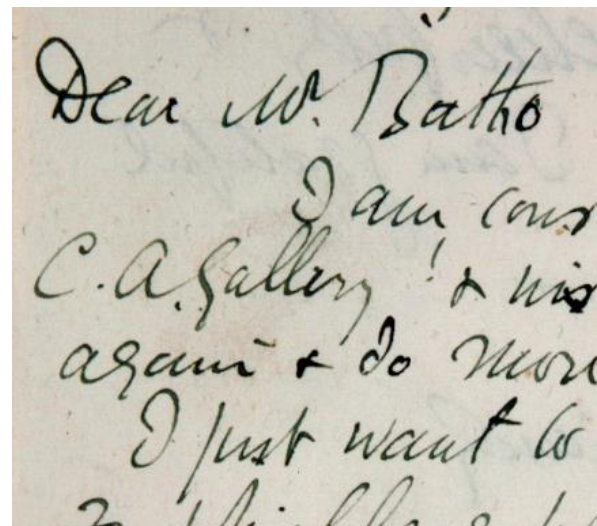 Dear Mr. Batho
I am
C. A. Gallery ! &
again & do more
I just want to